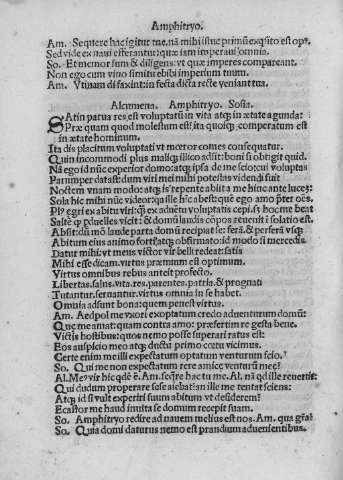 Amphitryo.
Am. Sequere hac igitur me. nā mihi istuc primū exq̄sito est opꝰ.
Sed vide ex naui efferantur: quæ iam imperaui omnia.
So. Et memor sum & diligens: vt quæ imperes compareant.
Non ego cum vino simitu ebibi imperium tuum.
Am. Vtinam di faxint: infecta dicta re eueniant tua.
Alcumena. Amphitryo. Sosia.
SAtin parua res est voluptatū in vita atqꝫ in ætate agunda:
Præ quam quod molestum est: ita cuiqꝫ comperatum est
in ætate hominum.
Ita dis placitum voluptati vt mœror comes consequatur.
Quin incommodi plus maliqꝫ illico adsit: boni si obtigit quid.
Nā ego id nūc experior domo: atqꝫ ipsa de me scio: cui voluptas
Parumper datast: dum viri mei mihi potestas videndi fuit
Noctem vnam modo: atqꝫ is repente abiit a me hinc ante lucē:
Sola hic mihi nūc videor: qa ille hic abest: quē ego amo p̄ter oēs.
Plꝰ ęgri ex abitu viri: qꝫ ex aduētu voluptatis cepi. sꝫ hoc me beat
Saltē q̄ pduelles vicit: & domū laudis cōpos reuenit: solatio est.
Absit: dū mō laude parta domū recipiat se: ferā. & perferā vsqꝫ
Abitum eius animo forti atqꝫ obfirmato: id modo si mercedis
Datur mihi: vt meus victor vir belli redeat: satis
Mihi esse dicam. virtus præmium est optimum.
Virtus omnibus rebus anteit profecto.
Libertas. salus. vita. res. parentes. patria. & prognati
Tutantur. seruantur. virtus omnia in se habet.
Omnia adsunt bona: quem penest virtus.
Am. Aedpol me vxori exoptatum credo aduenturum domū:
Quę me amat: quam contra amo: præsertim re gesta bene.
Victis hostibus: quos nemo posse superari ratus est:
Eos auspicio meo atqꝫ ductu primo cœtu vicimus.
Certe enim me illi expectatum optatum venturum scio.
So. Qui me non expectatum rere amicę venturū meę?
Al. Meꝰ vir hic qdē ē. Am. Seqre hac tu me. Al. nā qd ille reuertit:
Qui dudum properare sese aiebat: an ille me tentat sciens:
Atqꝫ id si vult experiri suum abitum vt desiderem?
Ecastor me haud inuita se domum recepit suam.
So. Amphitryo redire ad nauem melius est nos. Am. qua gr̄a?
So. Quia domi daturus nemo est prandium aduenientibus.